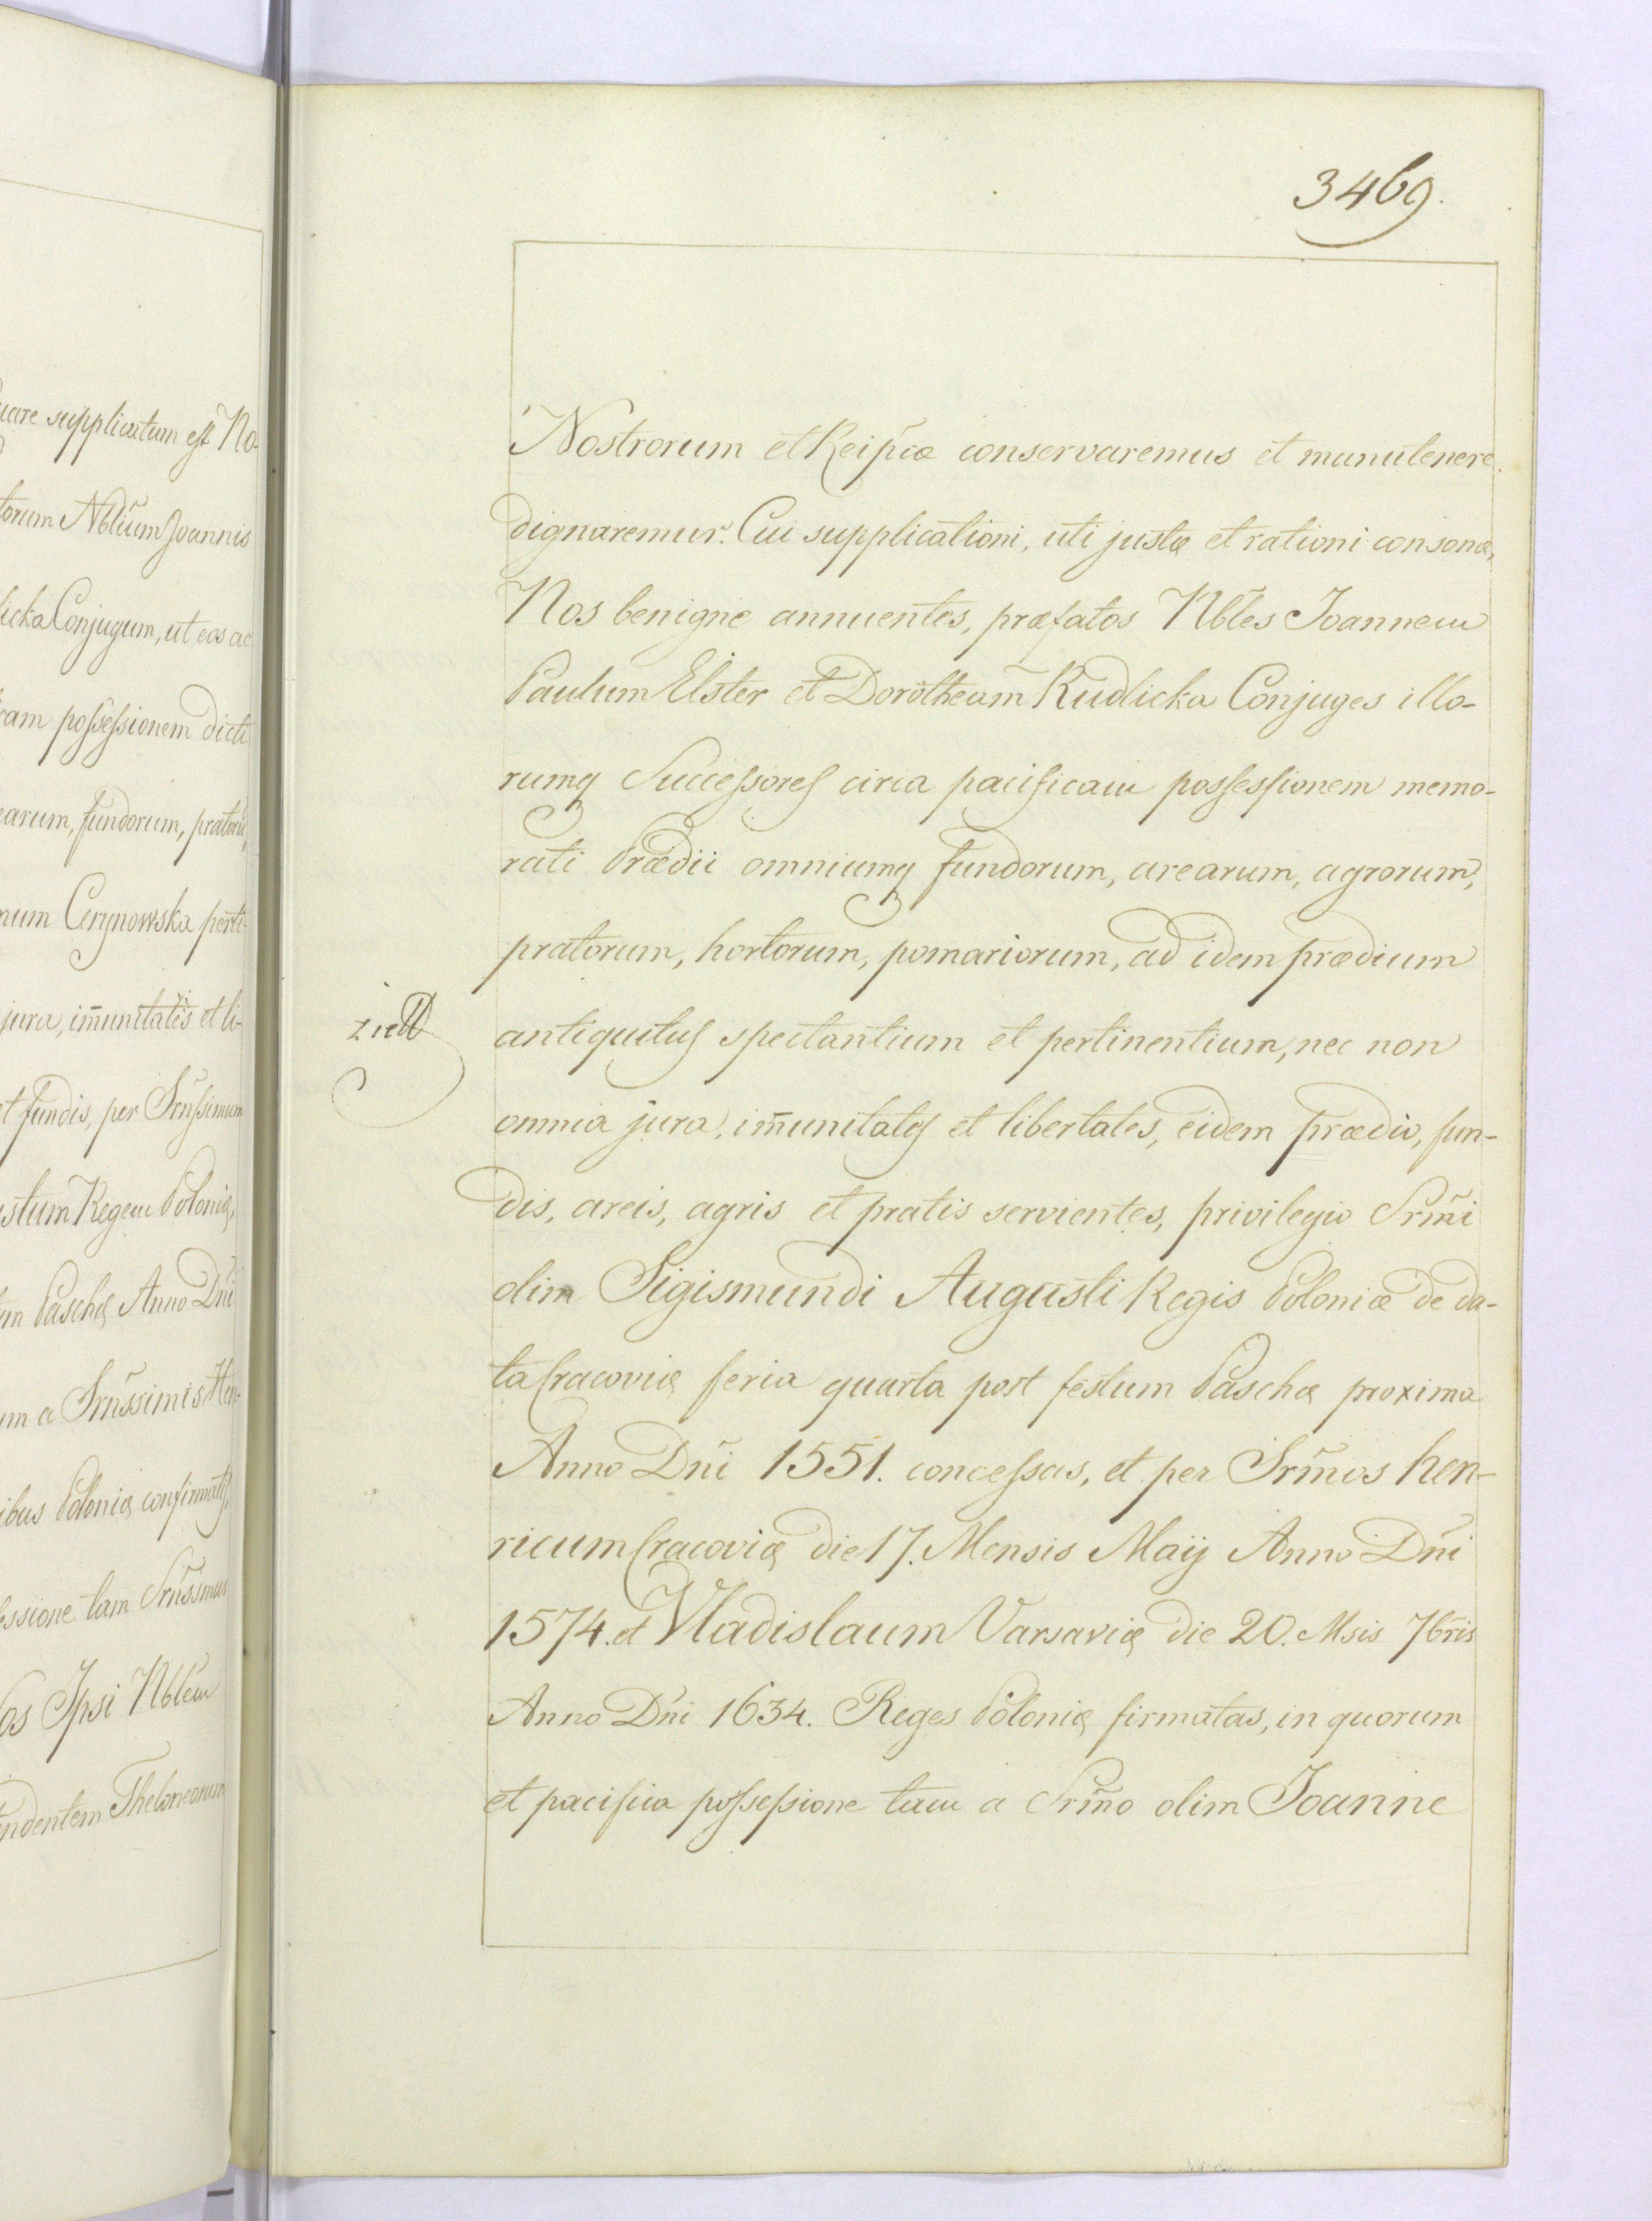 uare supplicatum est No-
torum Nblium Joannis
licka Conjugum, ut eos ac
cam possessionem dicti
earum, fundorum, pratorū,
num Cerynowska perti-
jura, im̄unitates et li-
et fundis, per Srnssimum
ustum Regem Poloniæ,
um Paschæ Anno Dn̄i
um a Srnssimis Hen-
ibus Poloniæ confirmatis,
essione tam Srnssimus
os Ipsi Nblem
endentem Theloneorum
3469.
Nostrorum et Reip̄cæ conservaremus et manutenere
dignaremur. Cui supplicationi, uti justæ et rationi consonæ,
Nos benigne annuentes, præfatos Nb̄les Joannem
Paulum Elster et Dorotheam Kudlicka Conjuges illo-
rumq Successores circa pacificam possessionem memo-
rati Prædii omniumq fundorum, arearum, agrorum,
pratorum, hortorum, pomariorum, ad idem prædium
antiquitus spectantium et pertinentium, nec non
omnia jura, im̄unitates et libertates, eidem prædio, fun-
dis, areis, agris et pratis servientes, privilegio Srm̄i
olim Sigismundi Augusti Regis Poloniæ de da-
ta Cracoviæ feria quarta post festum Paschæ proxima
Anno Dn̄i 1551. concessas, et per Srm̄os Hen-
ricum Cracoviæ die 17. Mensis Maij Anno Dn̄i
1574. et Vladislaum Varsaviæ die 20. Msis 7br̄is
Anno Dn̄i 1634. Reges Poloniæ firmatas, in quorum
et pacifica possessione tam a Srm̄o olim Joanne